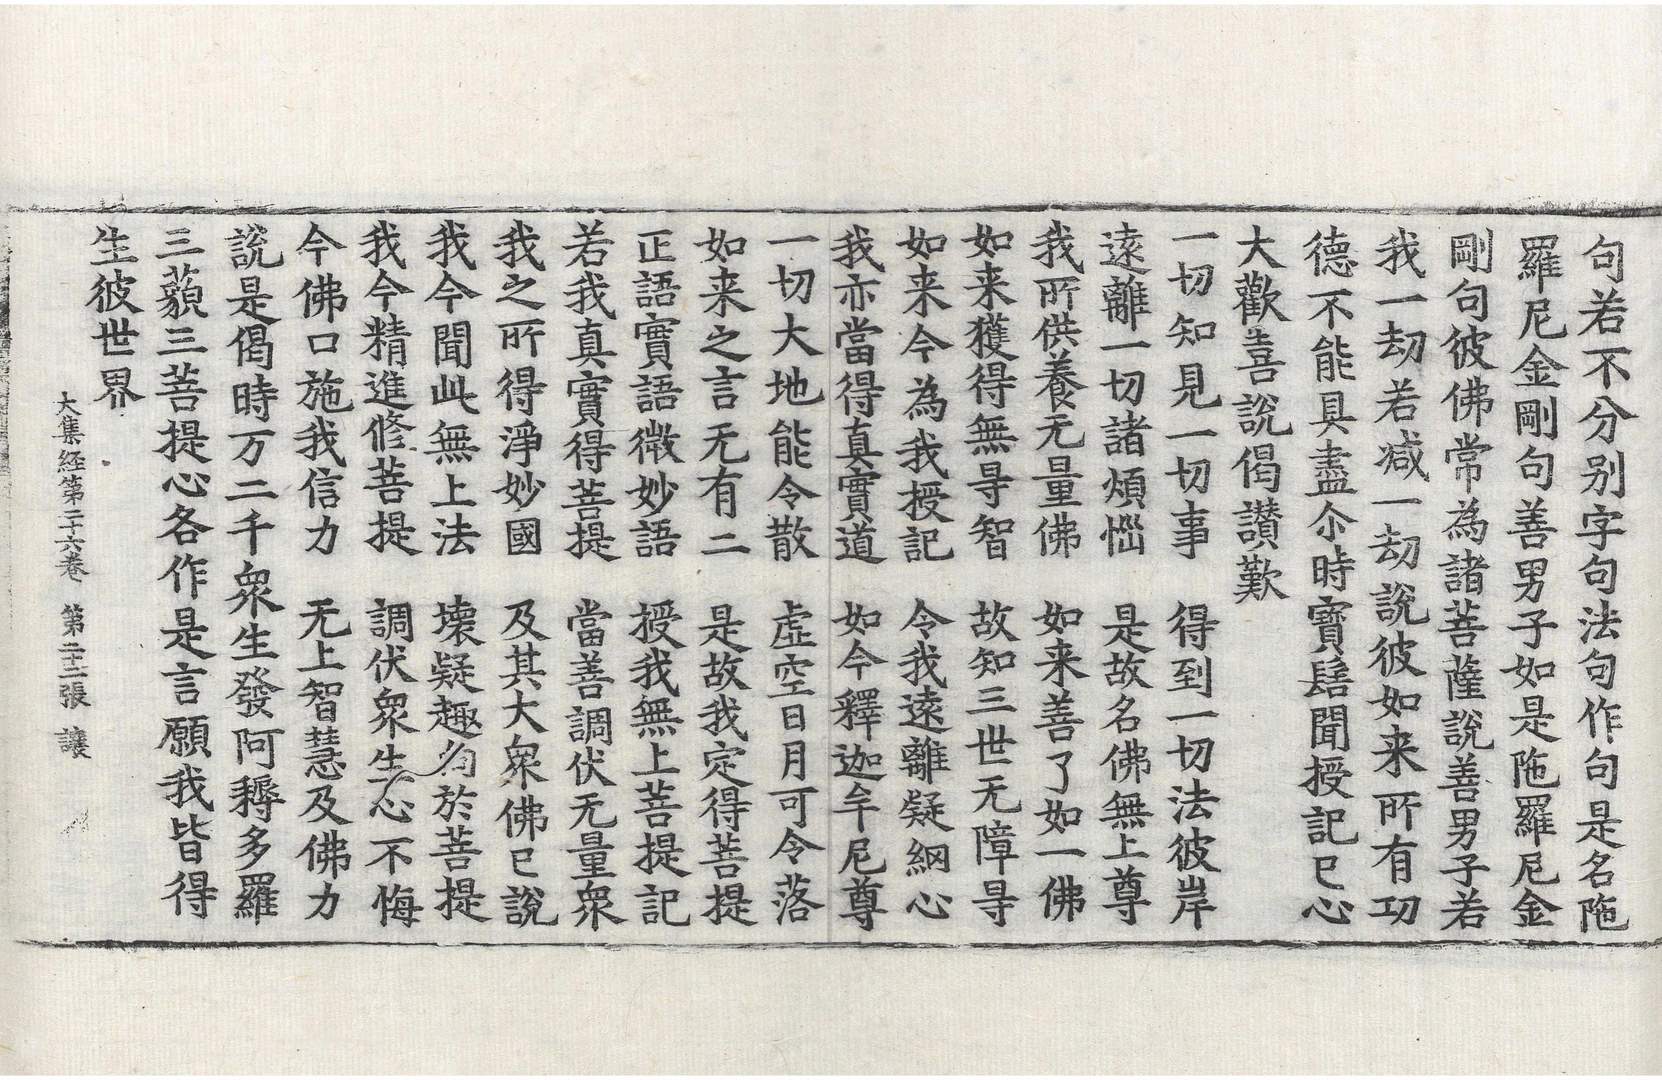 句若不分别字句法句作句是名陁
羅尼金剛句善男子如是陁羅尼金
剛句彼佛常為諸菩薩說善男子若
我一劫若减一劫說彼如来所有功
德不能具盡尒時寶髻聞授記已心
大歡喜說偈讃歎
一切知見一切事　得到一切法彼岸
遠離一切諸煩惱　是故名佛無上尊
我所供養无量佛　如来善了如一佛
如来獲得無㝵智　故知三世无障㝵
如来今為我授記　令我遠離疑網心
我亦當得真實道　如今釋迦牟尼尊
一切大地能令散　虛空日月可令落
如来之言无有二　是故我定得菩提
正語實語微妙語　授我無上菩提記
若我真實得菩提　當善調伏无量衆
我之所得淨妙國　及其大衆佛已說
我今聞此無上法　壞疑趣向於菩提
我今精進修菩提　調伏衆生心不悔
今佛口施我信力　无上智慧及佛力
說是偈時万二千衆生發阿耨多羅
三藐三菩提心各作是言願我皆得
生彼世界
大集経第二十六卷　第二十二張　讓